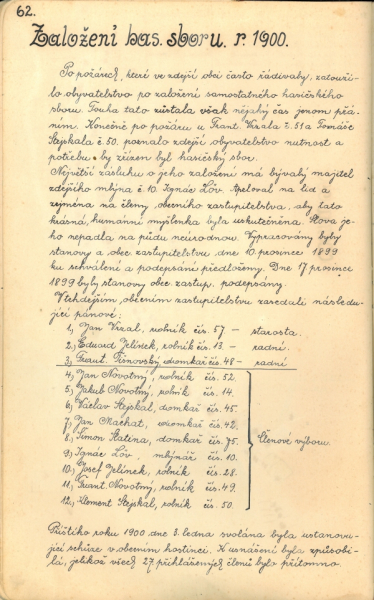 62.
Založení has. sboru. r. 1900.
Po požárech, které ve zdejší obci často řádívaly, zatouži-
lo obyvatelstvo po založení samostatného hasičského
sboru. Touha tato zůstala však nějaký čas jenom přá-
ním. Konečně po požáru u Frant. Vrzala č. 51 a Tomáše
Stejskala č. 50, poznalo zdejší obyvatelstvo nutnost a
potřebu, by zřízen byl hasičský sbor.
Největší zásluhu o jeho založení má bývalý majitel
zdejšího mlýna č. 10. Ignác Löv. Apeloval na lid a
zejména na členy obecního zastupitelstva, aby tato
krásná, humánní myšlenka byla uskutečněna. Slova je-
ho nepadla na půdu neúrodnou. Vypracovány byly
stanovy a obec. zastupitelstvu dne 10. prosince 1899
ku schválení a podepsání předloženy. Dne 17 prosince
1899 byly stanovy obec. zastup. podepsány.
V tehdejším obecním zastupitelstvu zasedali následu-
jící pánové:
1., Jan Vrzal, rolník čís. 57 – starosta.
2., Eduard Jelínek, rolník čís. 13 – radní.
3., Frant. Tišnovský, domkař čís. 48 – radní
4., Jan Novotný, rolník čís. 52.
5., Jakub Novotný, rolník čís. 14.
6., Václav Stejskal, domkař čís. 45.
7., Jan Machat, domkař čís. 42.
8., Šimon Slatina, domkař čís. 75.
9., Ignác Löv, mlynář čís. 10.
10., Josef Jelínek, rolník čís. 28.
11., Frant Novotný, rolník čís. 49.
12., Klement Stejskal, rolník čís. 50.
Členové výboru.
Příštího roku 1900 dne 8. ledna svolána byla ustanovu-
jící schůze v obecním hostinci. K usnášení byla způsobi-
lá, jelikož všech 27 přihlášených členů bylo přítomno.